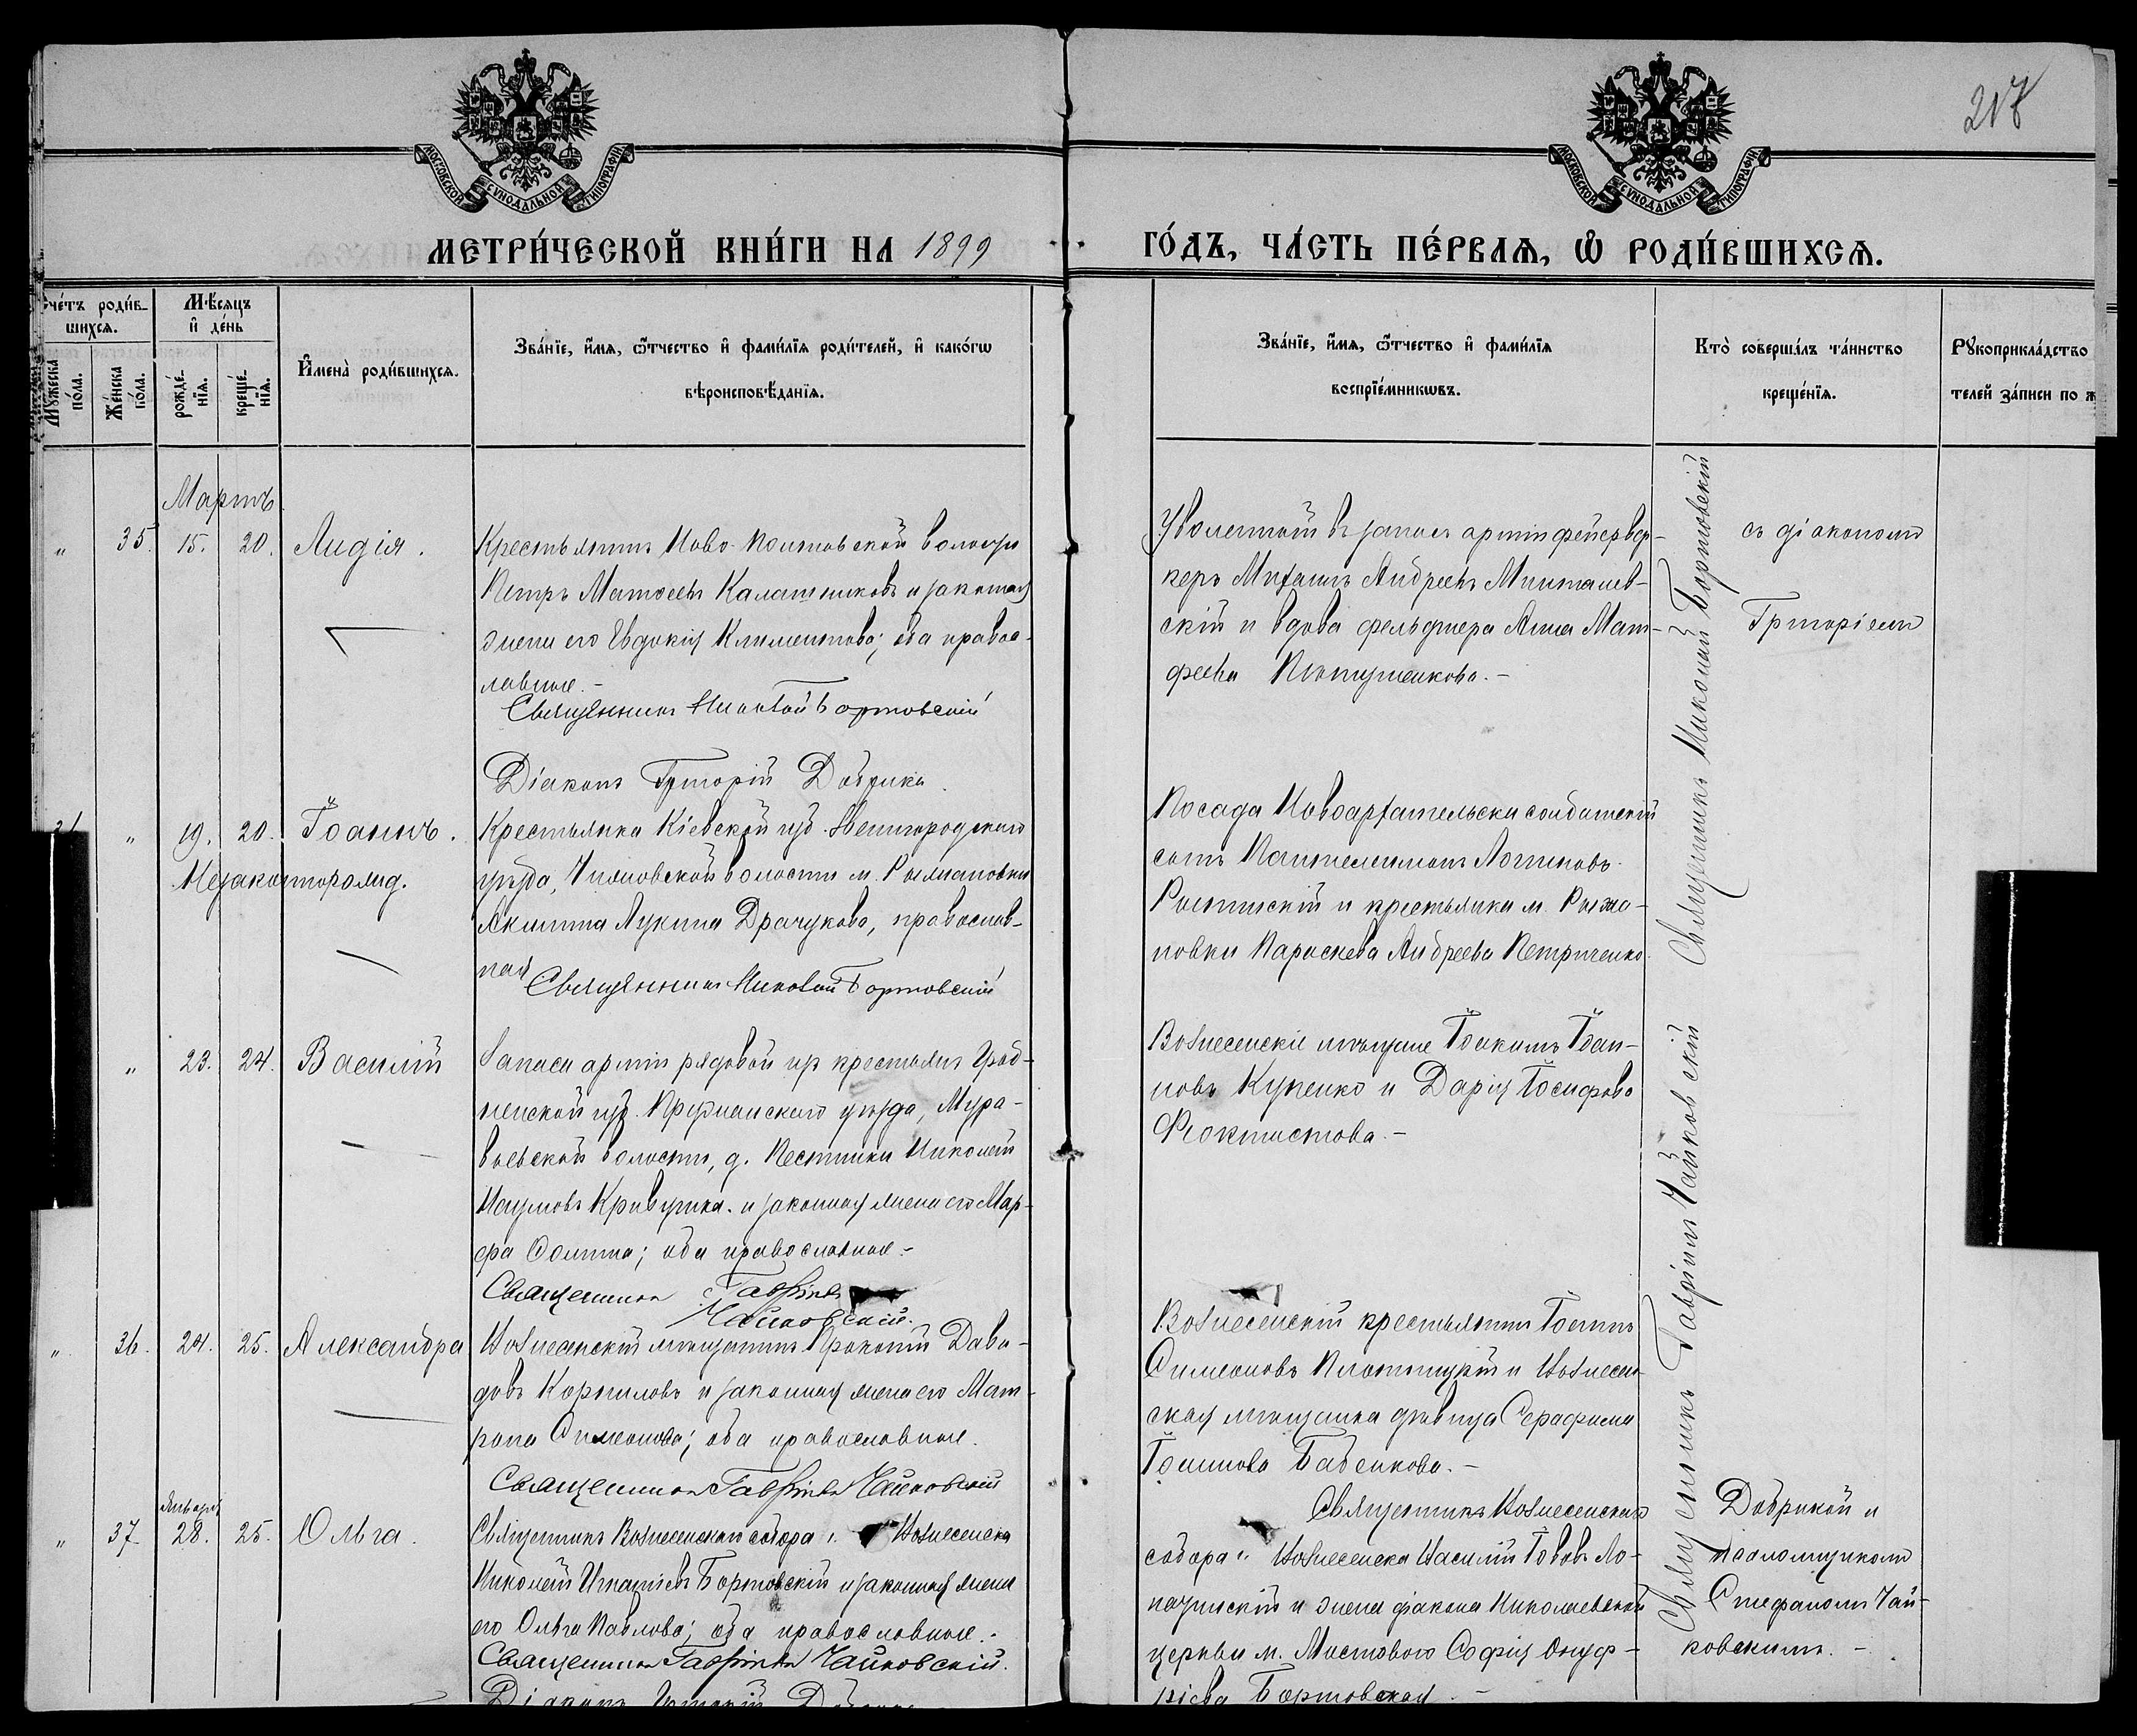 217
МОСКОВСКОЙ СѴНОДАЛЬНОЙ ТИПОГРАФІИ
МОСКОВСКОЙ СѴНОДАЛЬНОЙ ТИПОГРАФІИ
МЕТРИ́ЧЕСКОЙ КНИ́ГИ НА 1899
ГО́ДЪ, ЧА́СТЬ ПЕ́РВАѦ, Ѡ РОДИ́ВШИХСѦ.
счéтъ роди́в-
шихсѧ.
Мꙋ́жеска
по́ла.
Же́нска
по́ла.
Мѣ́сѧцъ
и҆ де́нь
рожде́-
нїѧ.
креще́-
нїѧ.
И҆мена̀ роди́вшихсѧ.
Зва́нїе, и҆́мѧ, ѻ҆́тчество и҆ фами́лїѧ роди́телей, и҆ како́гѡ
вѣроисповѣ́данїѧ.
Зва́нїе, и҆́мѧ, ѻ҆́тчество и҆ фами́лїѧ
воспрїе́мникѡвъ.
Кто̀ соверша́лъ та́инство
креще́нїѧ.
Рꙋкоприкла́дство
телей за́писи по ж
Мартъ
" 35. 15. 20. Лидія.
Крестьянинъ Ново-
волости
Петръ Матѳеевъ Калашниковъ и законная
жена его Евдокія Климентова; оба правос-
лавные.-
Священникъ Николай Бортовскій
Діаконъ Григорій Добрика
Уволенный въ запасъ арміи фейервер-
керъ Михаилъ Андреевъ
скій и вдова фельдшера Анна Мат-
феева
Священникъ Николай Бортовскій
съ діакономъ
Григоріемъ
" 19. 20. Іоаннъ.
Незаконнорожд.
Крестьянка Кіевской губ. Звенигородскаго
уѣзда,
волости м. Рыжановки
Акилина Лукина Драчукова, православ-
ная
Священникъ Николай Бортовскій
Посада Новоархангельска солдатскій
сынъ Пантелеимонъ Логиновъ
и крестьянка м. Рыжа-
новки Параскева Андреева Петриченко.
" 23. 24. Василій
Запаса арміи рядовой изъ крестьянъ Грод-
ненской губ. Пружанскаго уѣзда, Мура-
вьевской волости, д.
Николай
Наумовъ
и законная жена его Мар-
фа Фомина; оба православные.-
Священникъ Гавріилъ
Чайковскій.
Вознесенскіе мѣщане Іоакимъ Іоан-
новъ Куценко и Дарія Іосифова
Феоктистова.-
Священникъ Гавріилъ Чайковскій
" 36. 24. 25. Александра
Вознесенскій мѣщанинъ Прокопій Дави-
довъ Корниловъ и законная жена его Мат-
рона Симеонова; оба православные.
Священникъ Гавріилъ Чайковскій
Вознесенскій крестьянинъ Іоаннъ
Симеоновъ
и Вознесен-
ская мѣщанка дѣвица Серафима
Іоаннова Бабенкова.-
Январь
" 37. 28. 25. Ольга.
Священникъ Вознесенскаго собора г. Вознесенска
Николай Игнатіевъ Бортовскій и законная жена
его Ольга Павлова; оба православные.-
Священникъ Гавріилъ Чайковскій.
Діаконъ Григорій
Священникъ Вознесенскаго
собора г. Вознесенска Василій Іовъ Ло-
пачинскій и жена діакона Николаевской
церкви м. Мостового Софія Онуф-
ріева Бортовская.-
Добрикой и
псаломщикомъ
Стефаномъ Чай-
ковскимъ.-